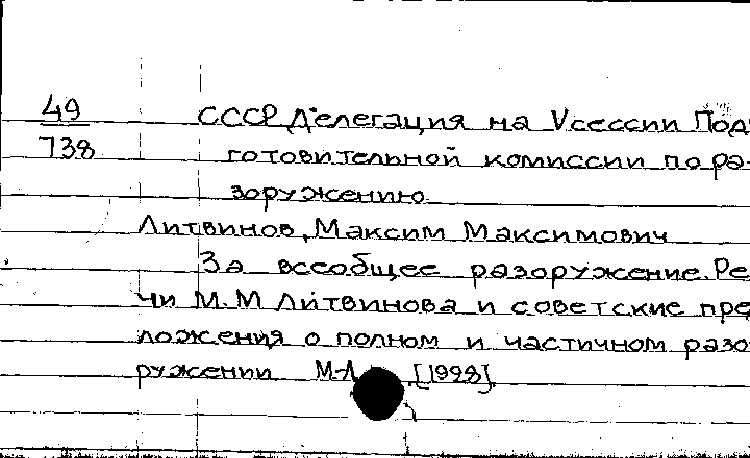 49 СССР Делегация на V сессии Под-
738 готовительной комиссии по ра-
зоружению
Литвинов, Максим Максимович
За всеобщее разоружение. Ре
чи М.М Литвинова и советские пре
ложения о полном и частичном разо
ружении М-Л [1928].